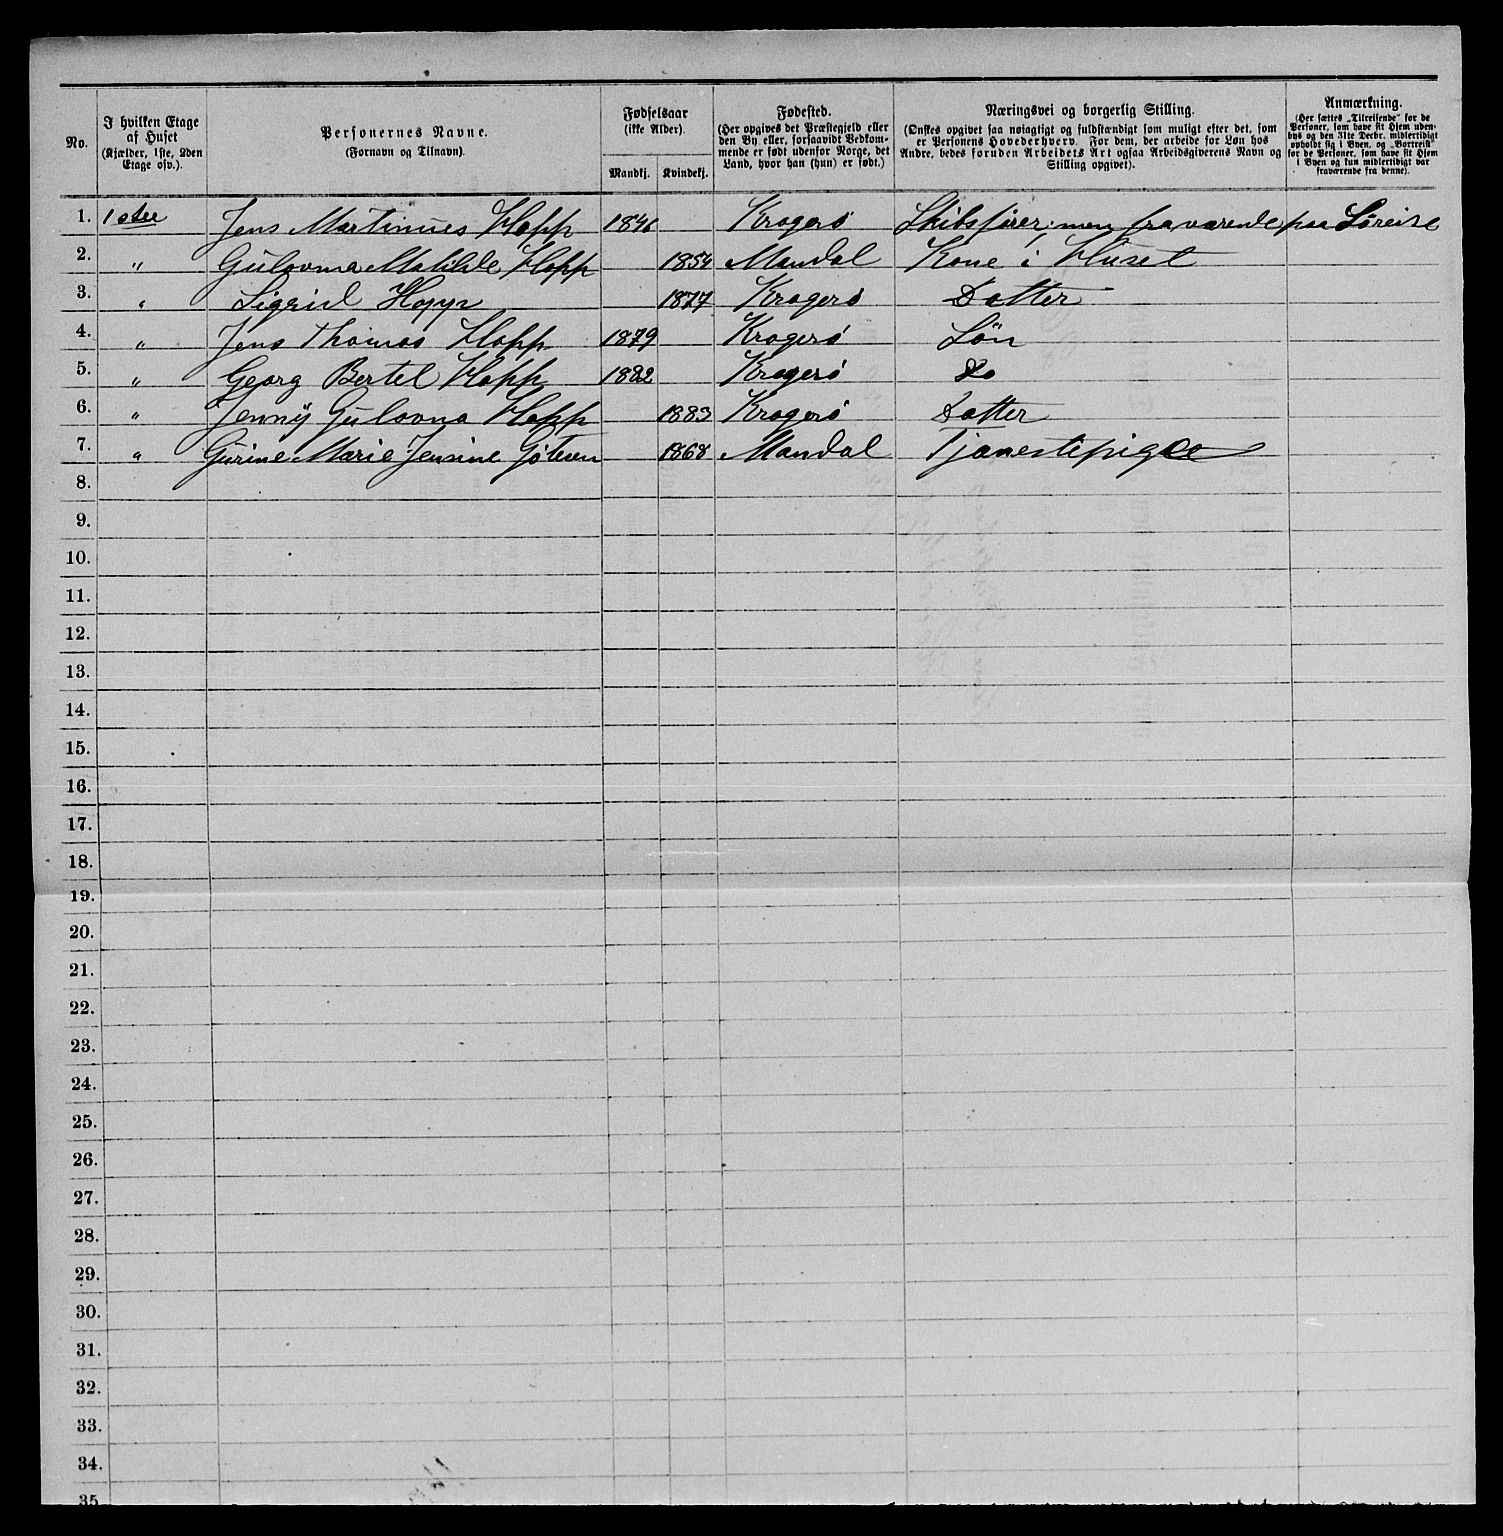 No.
I hvilken Etage
af Huset
(Kjælder, 1ste, 2den
Etage osv.).
Personernes Navne.
(Fornavn og Tilnavn).
Fødselsaar
(ikke Alder).
Mandkj. Kvindekj.
Fødested.
(Her opgives det Præstegjeld eller
den By eller, forsaavidt Vedkom-
mende er født udenfor Norge, det
Land, hvor han (hun) er født.)
Næringsvei og borgerlig Stilling.
(Ønskes opgivet saa nøiagtigt og fuldstændigt som muligt efter det, som
er Personens Hovederhverv. For dem, der arbeide for Løn hos
Andre, bedes foruden Arbeidets Art ogsaa Arbeidsgiverens Navn og
Stilling opgivet).
Anmærkning.
(Her sættes „Tilreisende" for de
Personer, som have sit Hjem uden-
bys og den 31te Decbr. midlertidigt
opholdt sig i Byen, og „Bortreist"
for de Personer, som have sit Hjem
i Byen og kun midlertidigt var
fraværende fra denne).
1. 1ste Jens Martinues Hopp 1846 Kragerø Skibsfører, men fraværende paa Søreise
2. " Gulovma Matilde Hopp 1854 Mandal Kone i Huset
3. " Sigrid Hopp 1877 Kragerø Datter
4. " Jens Thomas Hopp 1879 Kragerø Søn
5. " Georg Bertel Hopp 1882 Kragerø Do
6. " Jenny Gulovna Hopp 1883 Kragerø Datter
7. " Gurine Marie Jensine 1868 Mandal Tjenestepige
8.
9.
10.
11.
12.
13.
14.
15.
16.
17.
18.
19.
20.
21.
22.
23.
24.
25.
26.
27.
28.
29.
30.
31.
32.
33.
34.
35.